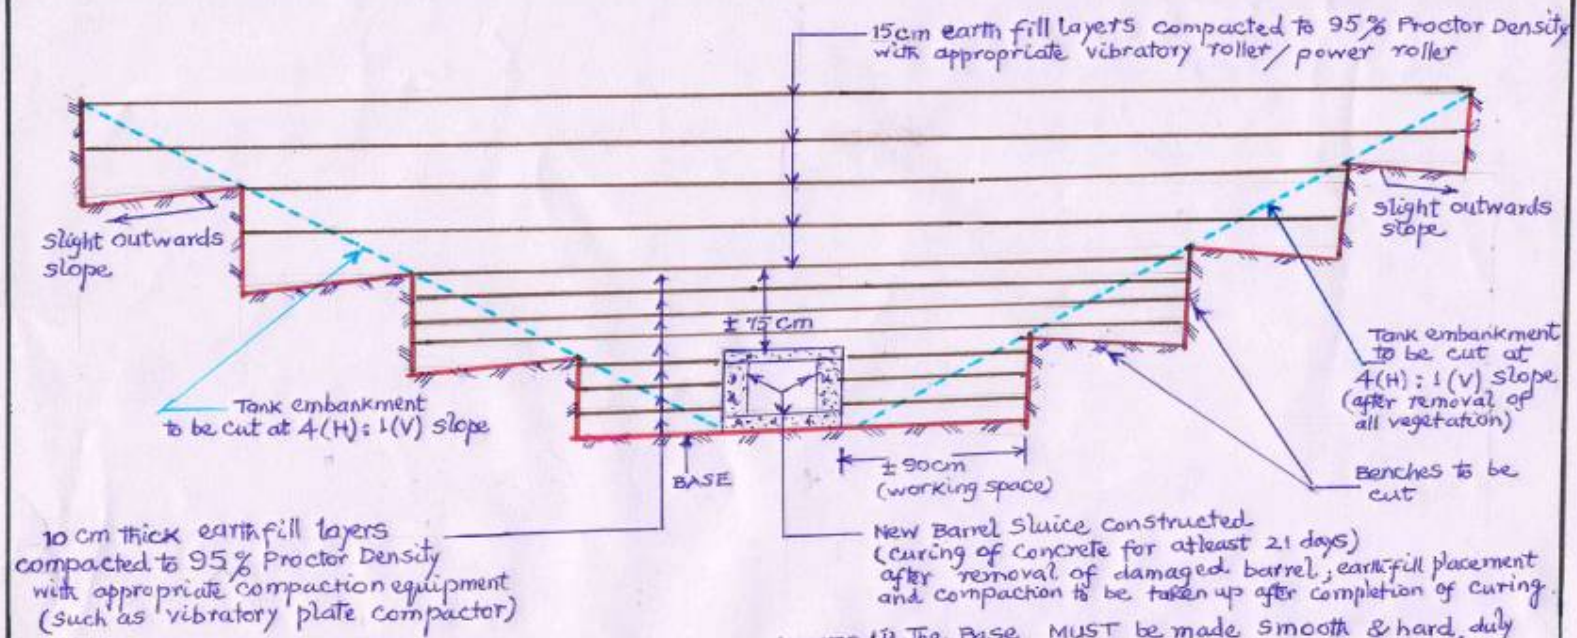 15cm earth fill layers compacted to 95% Proctor Density
with appropriate vibratory roller/power roller
slight outwards
slope
slight outwards
slope
± 75 cm
Tank embankment
to be cut at 4(H):1(V) slope
Tank embankment
to be cut at
4(H):1(V) slope
(after removal of
all vegetation)
BASE
± 90cm
(working space)
Benches to be
cut
10 cm thick earthfill layers
compacted to 95% Proctor Density
with appropriate compaction equipment
(such as vibratory plate compactor)
New Barrel Sluice constructed
(curing of concrete for atleast 21 days)
after removal of damaged barrel, earthfill placement
and compaction to be taken up after completion of curing.
The Base MUST be made smooth & hard, duly